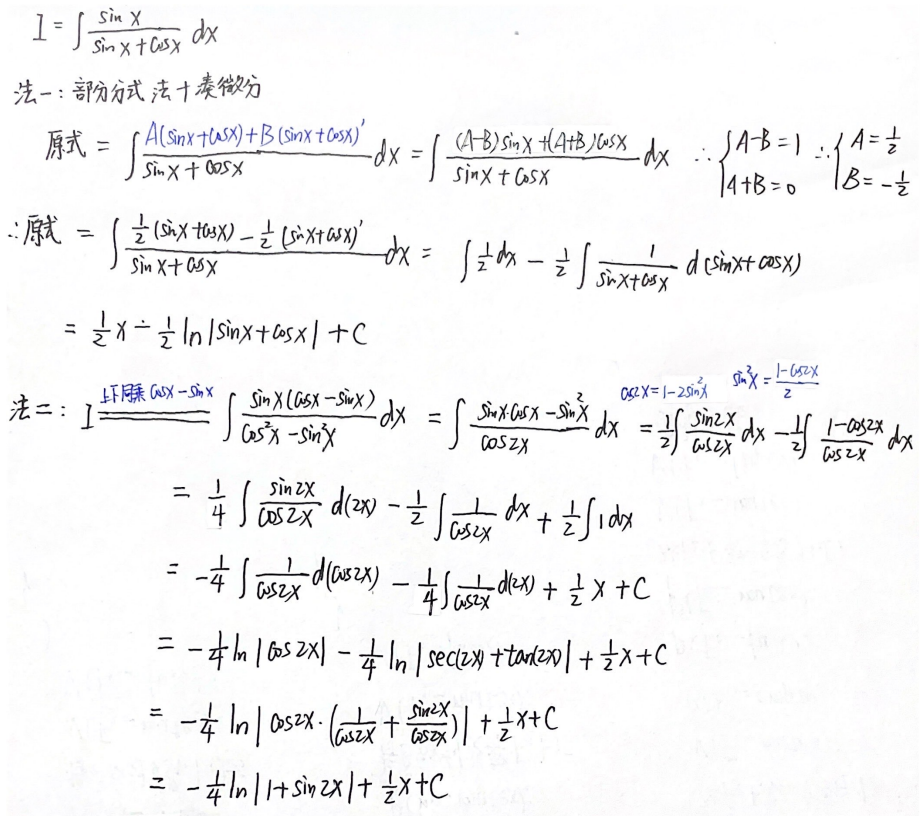 I = ∫ \frac{sin x}{sin x + cos x} dx
法一: 部分分式法 + 凑微分
原式 = ∫ \frac{A(sin x + cos x) + B(sin x + cos x)'}{sin x + cos x} dx = ∫ \frac{(A-B) sin x + (A+B) cos x}{sin x + cos x} dx ∴ { A-B=1 A+B=0 ∴ { A = \frac{1}{2} B = -\frac{1}{2}
∴原式 = ∫ \frac{\frac{1}{2}(sin x + cos x) - \frac{1}{2}(sin x + cos x)'}{sin x + cos x} dx = ∫ \frac{1}{2} dx - \frac{1}{2} ∫ \frac{1}{sin x + cos x} d(sin x + cos x)
= \frac{1}{2} x - \frac{1}{2} ln|sin x + cos x| + C
cos2x = 1-2sin²x sin²x = \frac{1-cos2x}{2}
法二: I \xlongequal{上下同乘 cos x - sin x} ∫ \frac{sin x (cos x - sin x)}{cos²x - sin²x} dx = ∫ \frac{sin x · cos x - sin²x}{cos2x} dx = \frac{1}{2} ∫ \frac{sin2x}{cos2x} dx - \frac{1}{2} ∫ \frac{1-cos2x}{cos2x} dx
= \frac{1}{4} ∫ \frac{sin2x}{cos2x} d(2x) - \frac{1}{2} ∫ \frac{1}{cos2x} dx + \frac{1}{2} ∫ 1 dx
= -\frac{1}{4} ∫ \frac{1}{cos2x} d(cos2x) - \frac{1}{4} ∫ \frac{1}{cos2x} d(2x) + \frac{1}{2} x + C
= -\frac{1}{4} ln|cos2x| - \frac{1}{4} ln|sec(2x) + tan(2x)| + \frac{1}{2} x + C
= -\frac{1}{4} ln|cos2x · (\frac{1}{cos2x} + \frac{sin2x}{cos2x})| + \frac{1}{2} x + C
= -\frac{1}{4} ln|1 + sin2x| + \frac{1}{2} x + C